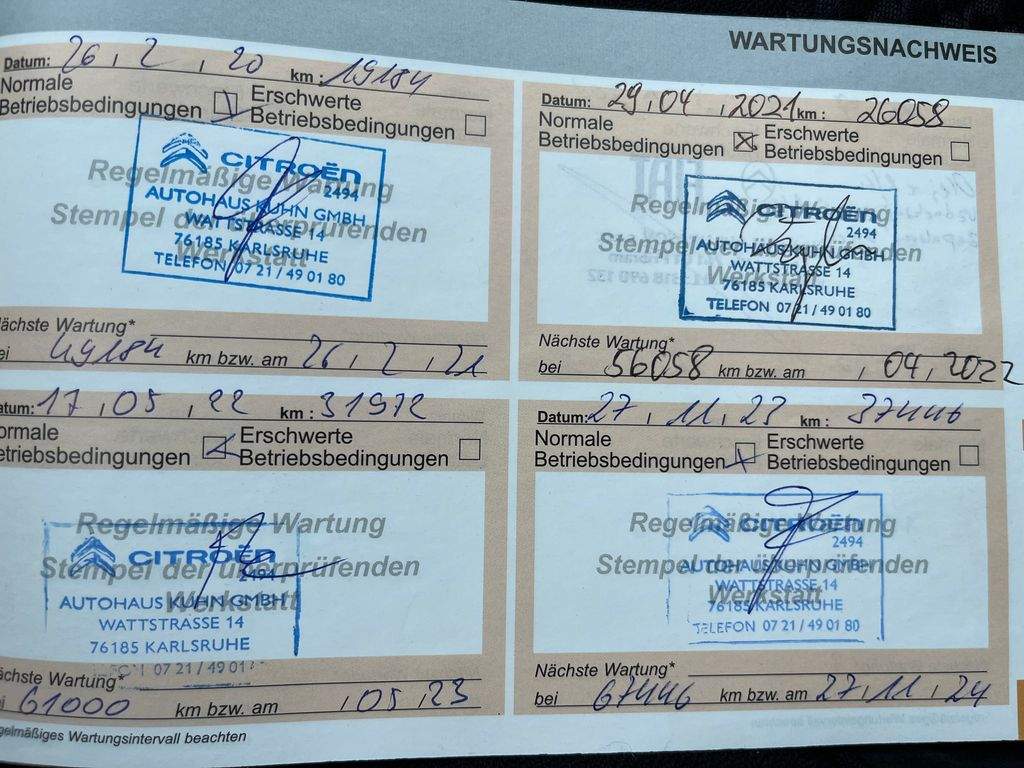 WARTUNGSNACHWEIS
Datum: 26, 2, 20 km: 19184
Normale Erschwerte
Betriebsbedingungen Betriebsbedingungen
CITROËN
Regelmäßige Wartung
2494
AUTOHAUS KUHN GMBH
Stempel der überprüfenden
WATTSTRASSE 14
Werkstatt
76185 KARLSRUHE
TELEFON 07 21 / 49 01 80
ächste Wartung*
ei 49184 km bzw. am 26, 2, 21
Datum: 29, 04, 2021 km: 26058
Normale Erschwerte
Betriebsbedingungen Betriebsbedingungen
FIAT
Regelmäßige Wartung
CITROËN
2494
Stempel der überprüfenden
AUTOHAUS KUHN GMBH
WATTSTRASSE 14
Werkstatt
76185 KARLSRUHE
TELEFON 07 21 / 49 01 80
Nächste Wartung*
bei 56058 km bzw. am , 04, 2022
atum: 17, 05, 22 km: 31972
ormale Erschwerte
etriebsbedingungen Betriebsbedingungen
Regelmäßige Wartung
CITROËN
Stempel der überprüfenden
2494
AUTOHAUS KUHN GMBH
Werkstatt
WATTSTRASSE 14
76185 KARLSRUHE
FON 07 21 / 49 01
ächste Wartung*
ei 61000 km bzw. am , 05, 23
Datum: 27, 11, 23 km: 37446
Normale Erschwerte
Betriebsbedingungen Betriebsbedingungen
Regelmäßige Wartung
CITROËN
2494
Stempel der überprüfenden
AUTOHAUS KUHN GMBH
WATTSTRASSE 14
Werkstatt
76185 KARLSRUHE
TELEFON 07 21 / 49 01 80
Nächste Wartung*
bei 67446 km bzw. am 27, 11, 24
egelmäßiges Wartungsintervall beachten